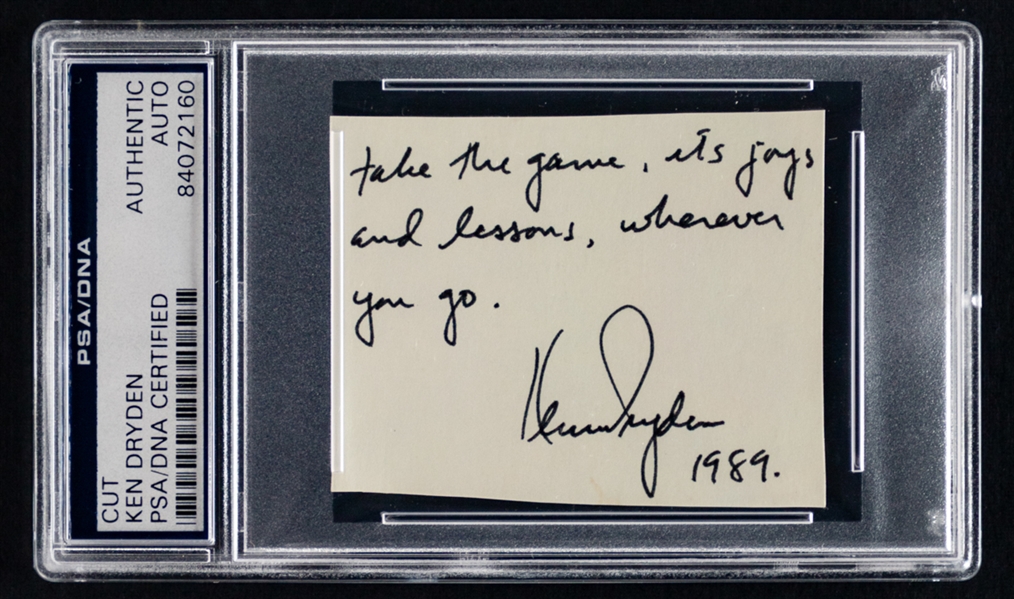 PSA/DNA
CUT
KEN DRYDEN
PSA/DNA CERTIFIED
AUTHENTIC
AUTO
84072160
take the game, its joys
and lessons, wherever
you go.
Ken Dryden
1989.